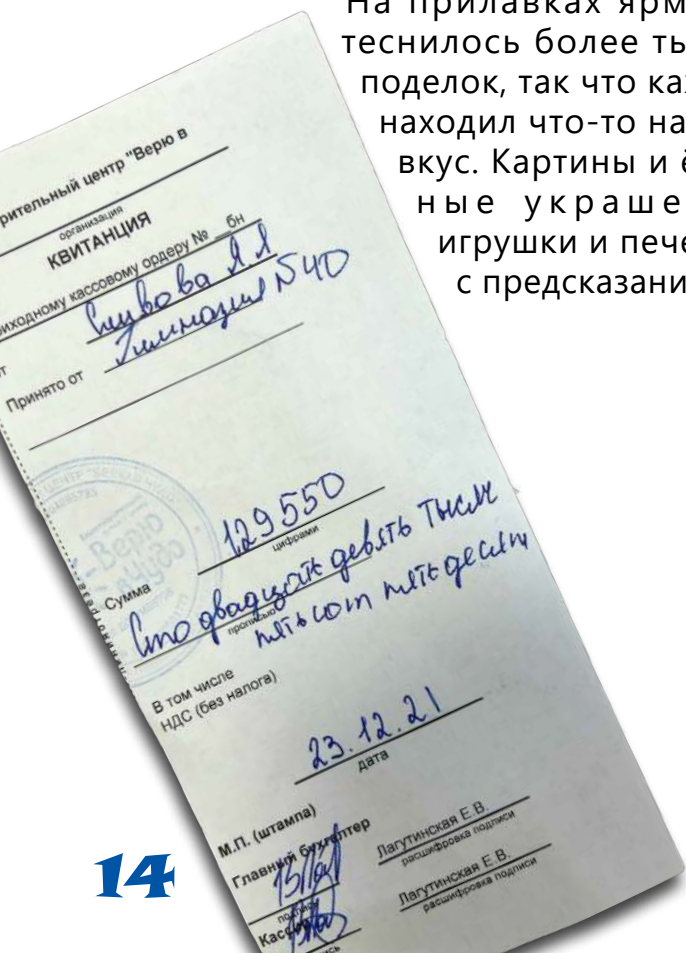 На прилавках ярм
теснилось более ты
поделок, так что ка
находил что-то на
вкус. Картины и ё
ные украше
игрушки и пече
с предсказани
рительный центр "Верю в
организация
КВИТАНЦИЯ
риходному кассовому ордеру № бн
Принято от
Гимназия N40
Сумма
129550
цифрами
Сто двадцать девять тысяч
прописью
пятьсот пятьдесят
В том числе
НДС (без налога)
23.12.21
дата
М.П. (штампа)
Главный бухгалтер
Лагутинская Е.В.
подпись
расшифровка подписи
Кассир
Лагутинская Е.В.
расшифровка подписи
14